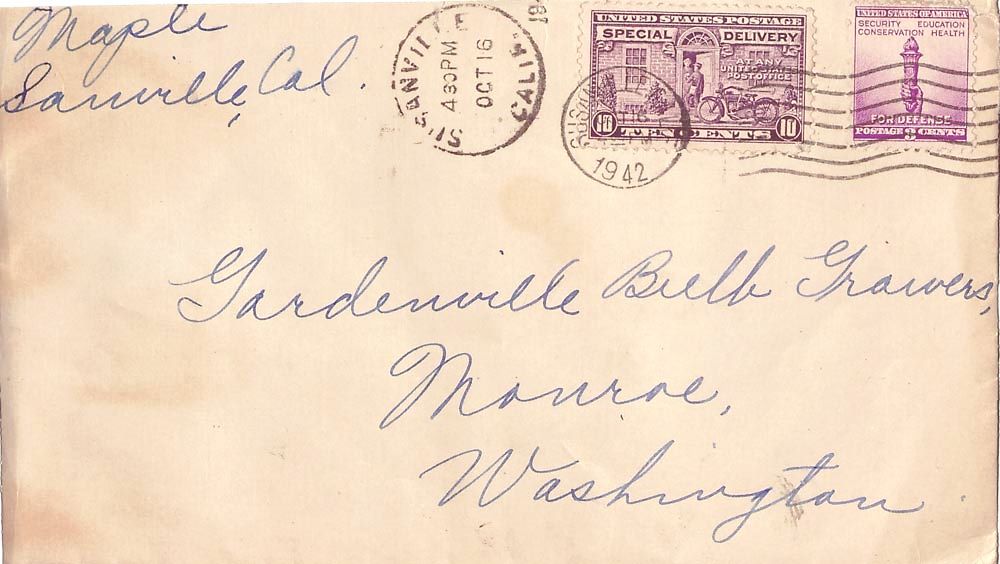 Maple
Sanville, Cal.
SUSANVILLE
CALIF.
430PM
OCT 16
194
UNITED STATES POSTAGE
SPECIAL DELIVERY
AT ANY
UNITED STATES
POST OFFICE
10 TEN CENTS 10
1942
UNITED STATES OF AMERICA
SECURITY EDUCATION
CONSERVATION HEALTH
FOR DEFENSE
POSTAGE 3 CENTS
Gardenville Bulb Growers,
Monroe,
Washington